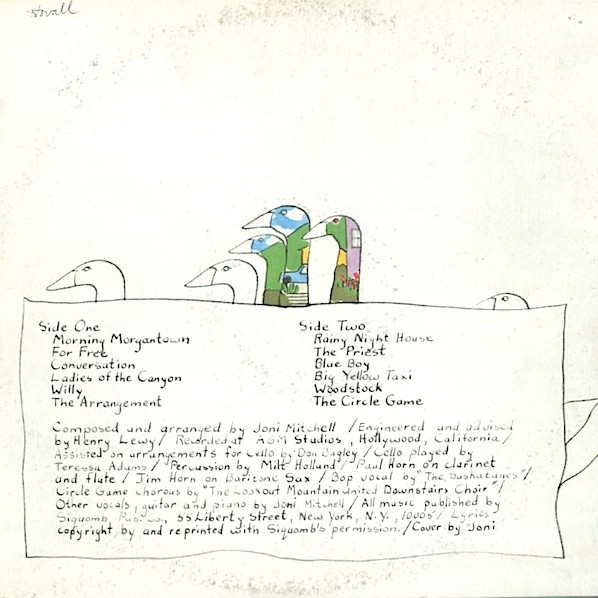 stovall
Side One
Morning Morgantown
For Free
Conversation
Ladies of the Canyon
Willy
The Arrangement
Side Two
Rainy Night House
The Priest
Blue Boy
Big Yellow Taxi
Woodstock
The Circle Game
Composed and arranged by Joni Mitchell / Engineered and advised
by Henry Lewy / Recorded at A&M Studios, Hollywood, California /
Assisted on arrangements for Cello by Don Bagley / Cello played by
Teressa Adams / Percussion by Milt Holland / Paul Horn on Clarinet
and flute / Jim Horn on Baritone Sax / Bop vocal by "The Saskatunes" /
Circle Game Chorous by "The Lookout Mountain United Downstairs Choir" /
Other vocals, guitar and piano by Joni Mitchell / All music published by
Siquomb Pub. Co., 55 Liberty Street, New York, N.Y., 10005 / Lyrics
copyright by and reprinted with Siquomb's permission. / Cover by Joni